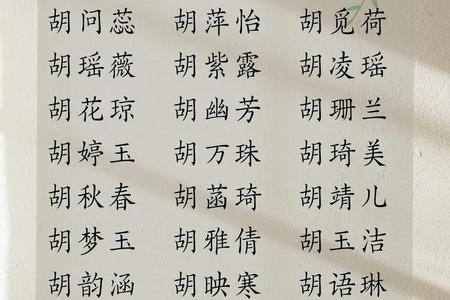 胡问蕊 胡萍怡 胡觅荷
胡瑶薇 胡紫露 胡凌瑶
胡花琼 胡幽芳 胡珊兰
胡婷玉 胡万珠 胡琦美
胡秋春 胡菡琦 胡靖儿
胡梦玉 胡雅倩 胡玉洁
胡韵涵 胡映寒 胡语琳